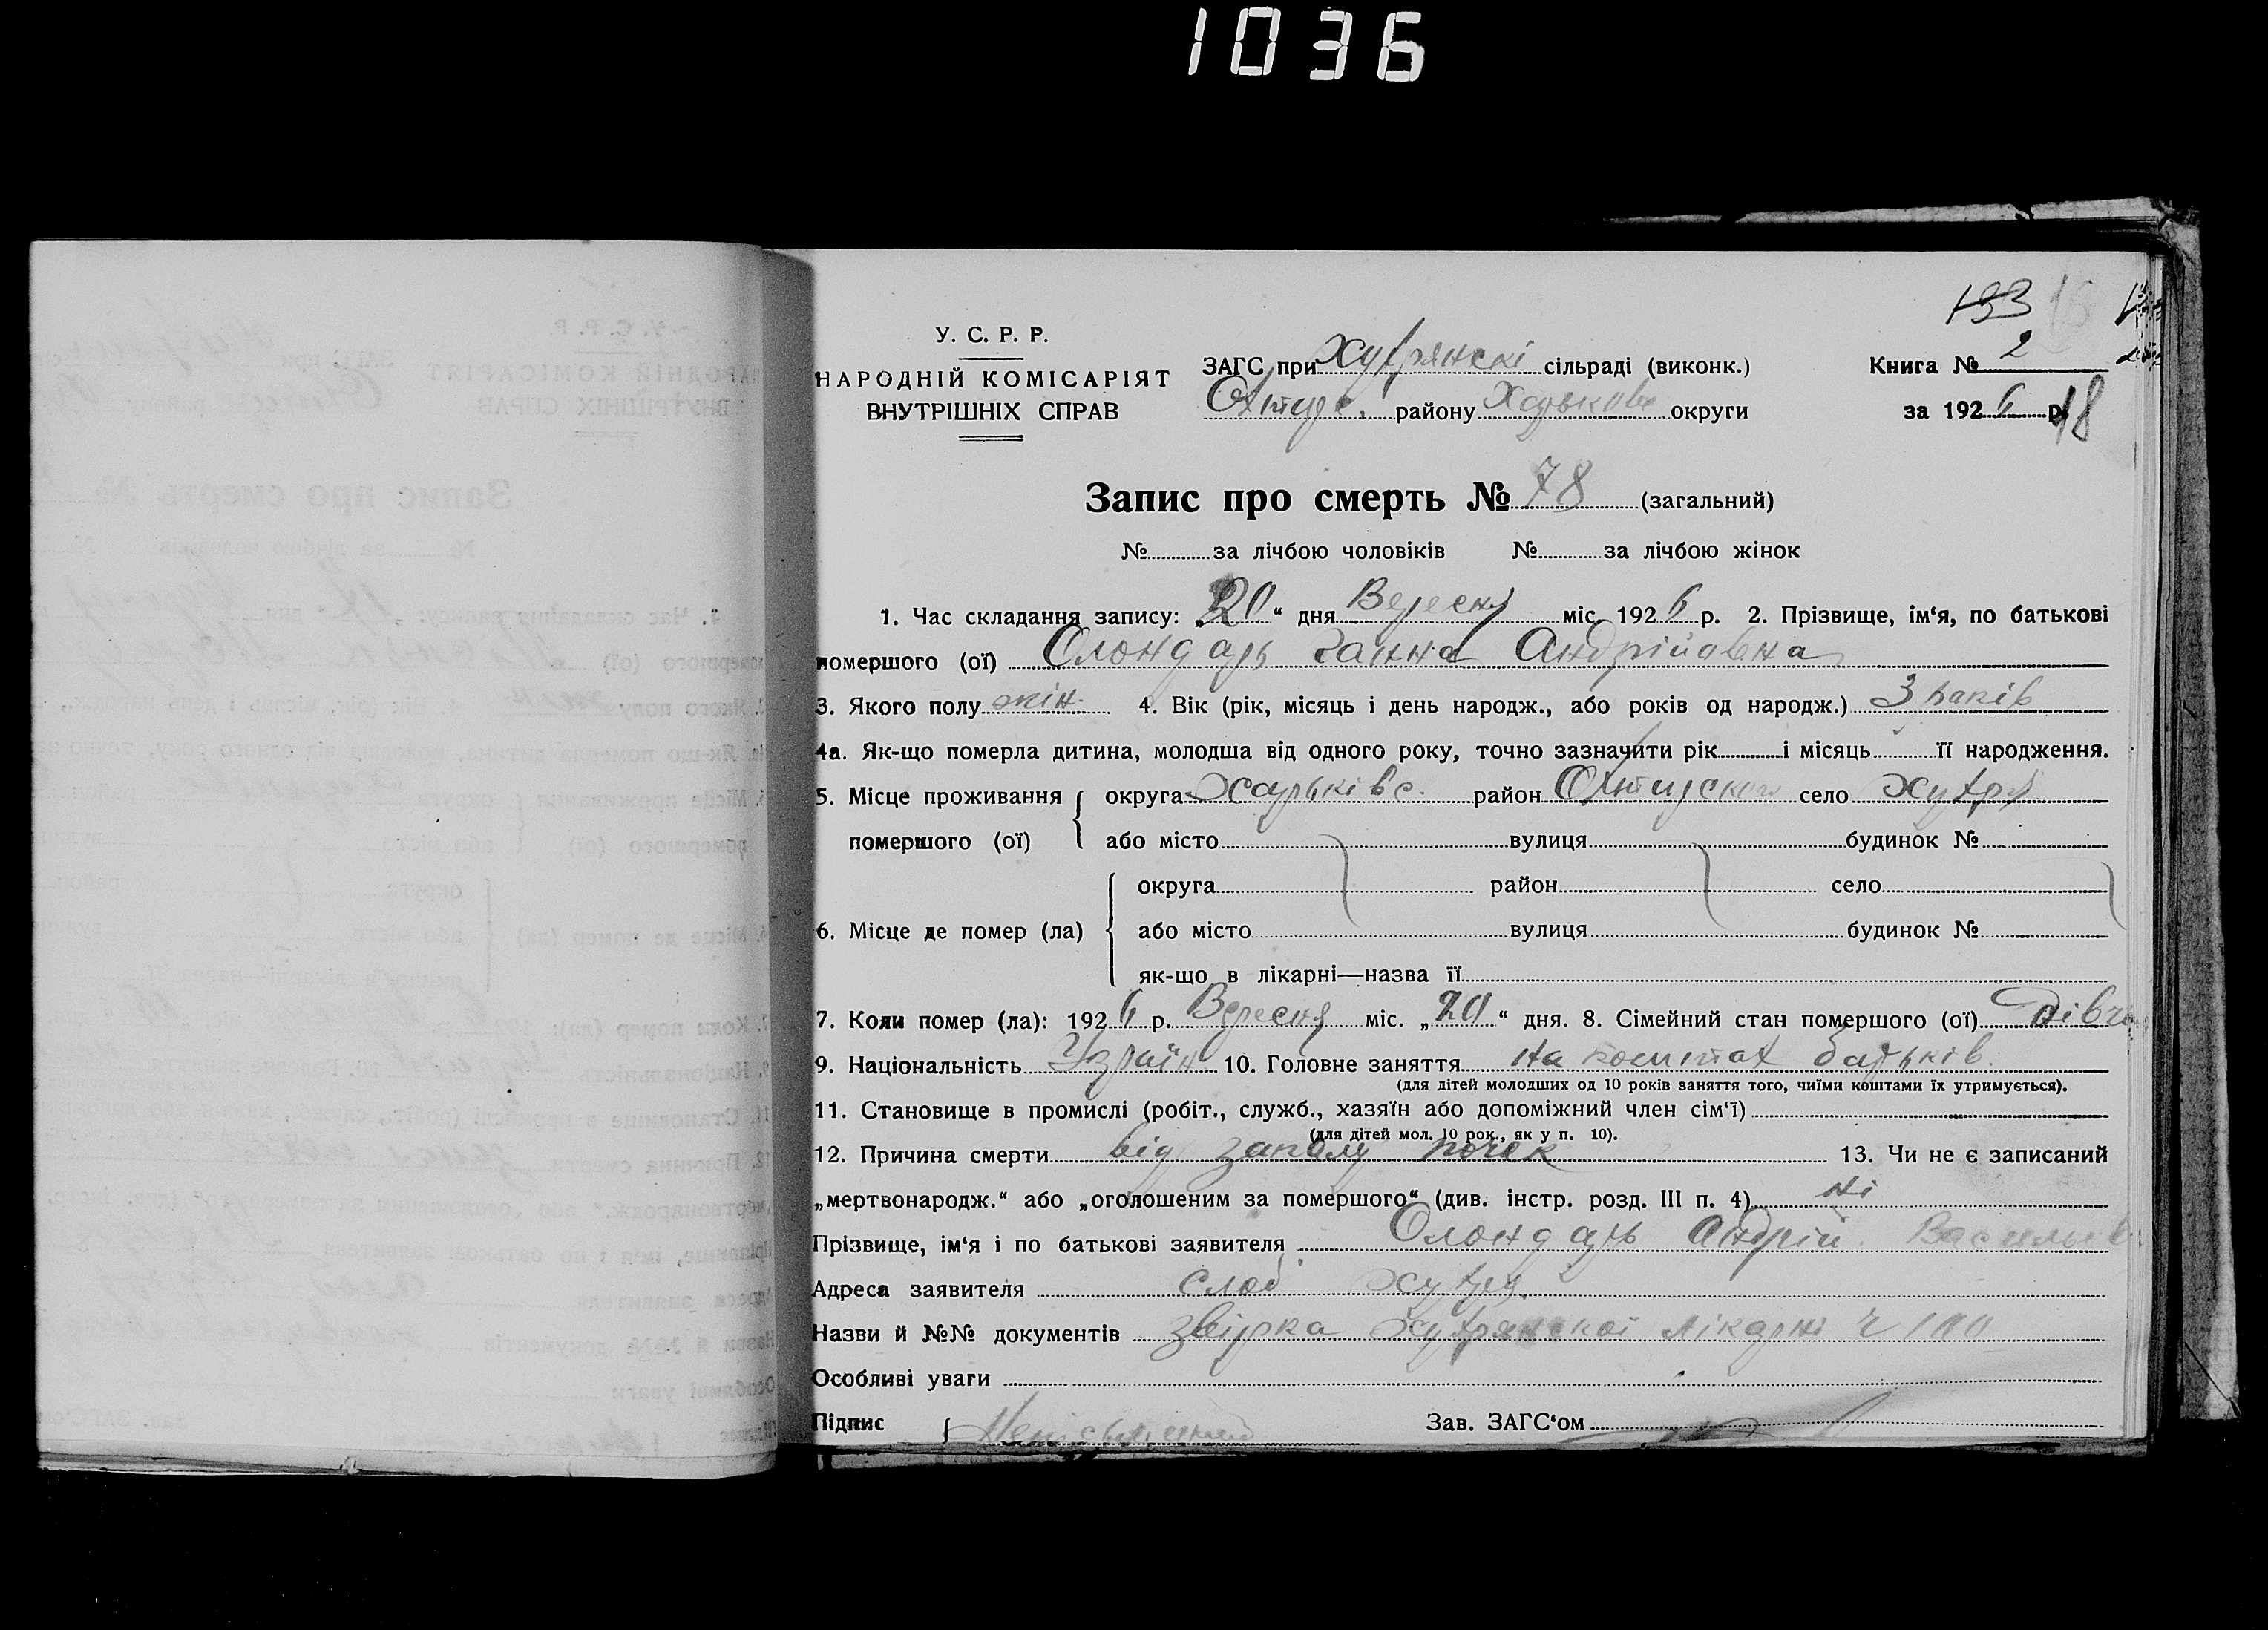 1036
133
У. С. Р. Р.
НАРОДНІЙ КОМІСАРІЯТ
ВНУТРІШНІХ СПРАВ
ЗАГС при Хутрянскі сільраді (виконк.)
району Харькове округи
Книга № 2
за 192 6 р.
18
Запис про смерть № 78 (загальний)
№ за лічбою чоловіків № за лічбою жінок
1. Час складання запису: „ 20 “ дня Вересня міс. 192 6 р. 2. Прізвище, ім‘я, по батькові
помершого (ої) Олондарь Ганна Андрійовна
3. Якого полу жін. 4. Вік (рік, місяць і день народж., або років од народж.) 3
4а. Як-що померла дитина, молодша від одного року, точно зазначити рік і місяць її народження.
5. Місце проживання помершого (ої) округа Харьківс. район село Хутря
або місто вулиця будинок №
6. Місце де помер (ла) округа район село
або місто вулиця будинок №
як-що в лікарні—назва її
7. Коли помер (ла): 192 6 р. Вересня міс. „ 20 “ дня. 8. Сімейний стан помершого (ої)
9. Національність Україн. 10. Головне заняття на коштах батьків.
(для дітей молодших од 10 років заняття того, чиїми коштами їх утримується).
11. Становище в промислі (робіт., служб., хазяїн або допоміжний член сім‘ї)
(для дітей мол. 10 рок., як у п. 10).
12. Причина смерти від запалу почек 13. Чи не є записаний
„мертвонародж.“ або „оголошеним за помершого“ (див. інстр. розд. III п. 4) ні
Прізвище, ім‘я і по батькові заявителя Олондарь Андрій Васильев
Адреса заявителя слоб Хутря.
Назви й №№ документів Хутрянскої лікарні Ч 100
Особливі уваги
Підпис Неписьменний Зав. ЗАГС‘ом